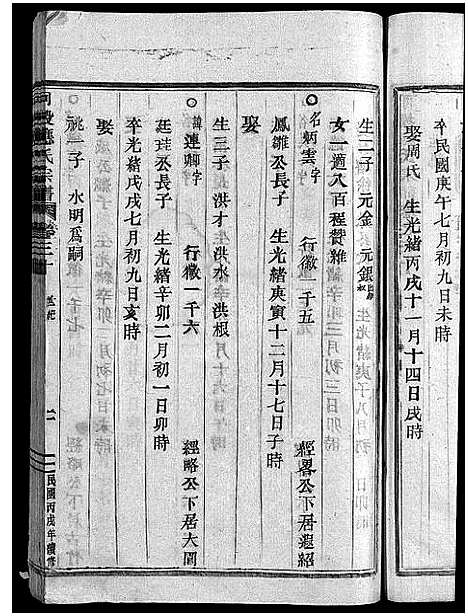 卒民國庚午七月初九日未時
娶周氏 生光緒丙戌十一月十四日戌時
生二子 元金 元銀
女一適八百程贊雒
名炳雲字 行徽一千五 經畧公下居遐紹
鳳雛公長子 生光緒庚寅十二月十七日子時
娶
生三子 洪才 洪水 洪根
諱連聊字 行徽一千六 經略公下居大園
廷珪公長子 生光緒辛卯二月初一日卯時
卒光緒戊戌七月初九日亥時
娶
祧一子 水明爲嗣
氏宗譜 卷三十 二 民國丙戌年續修